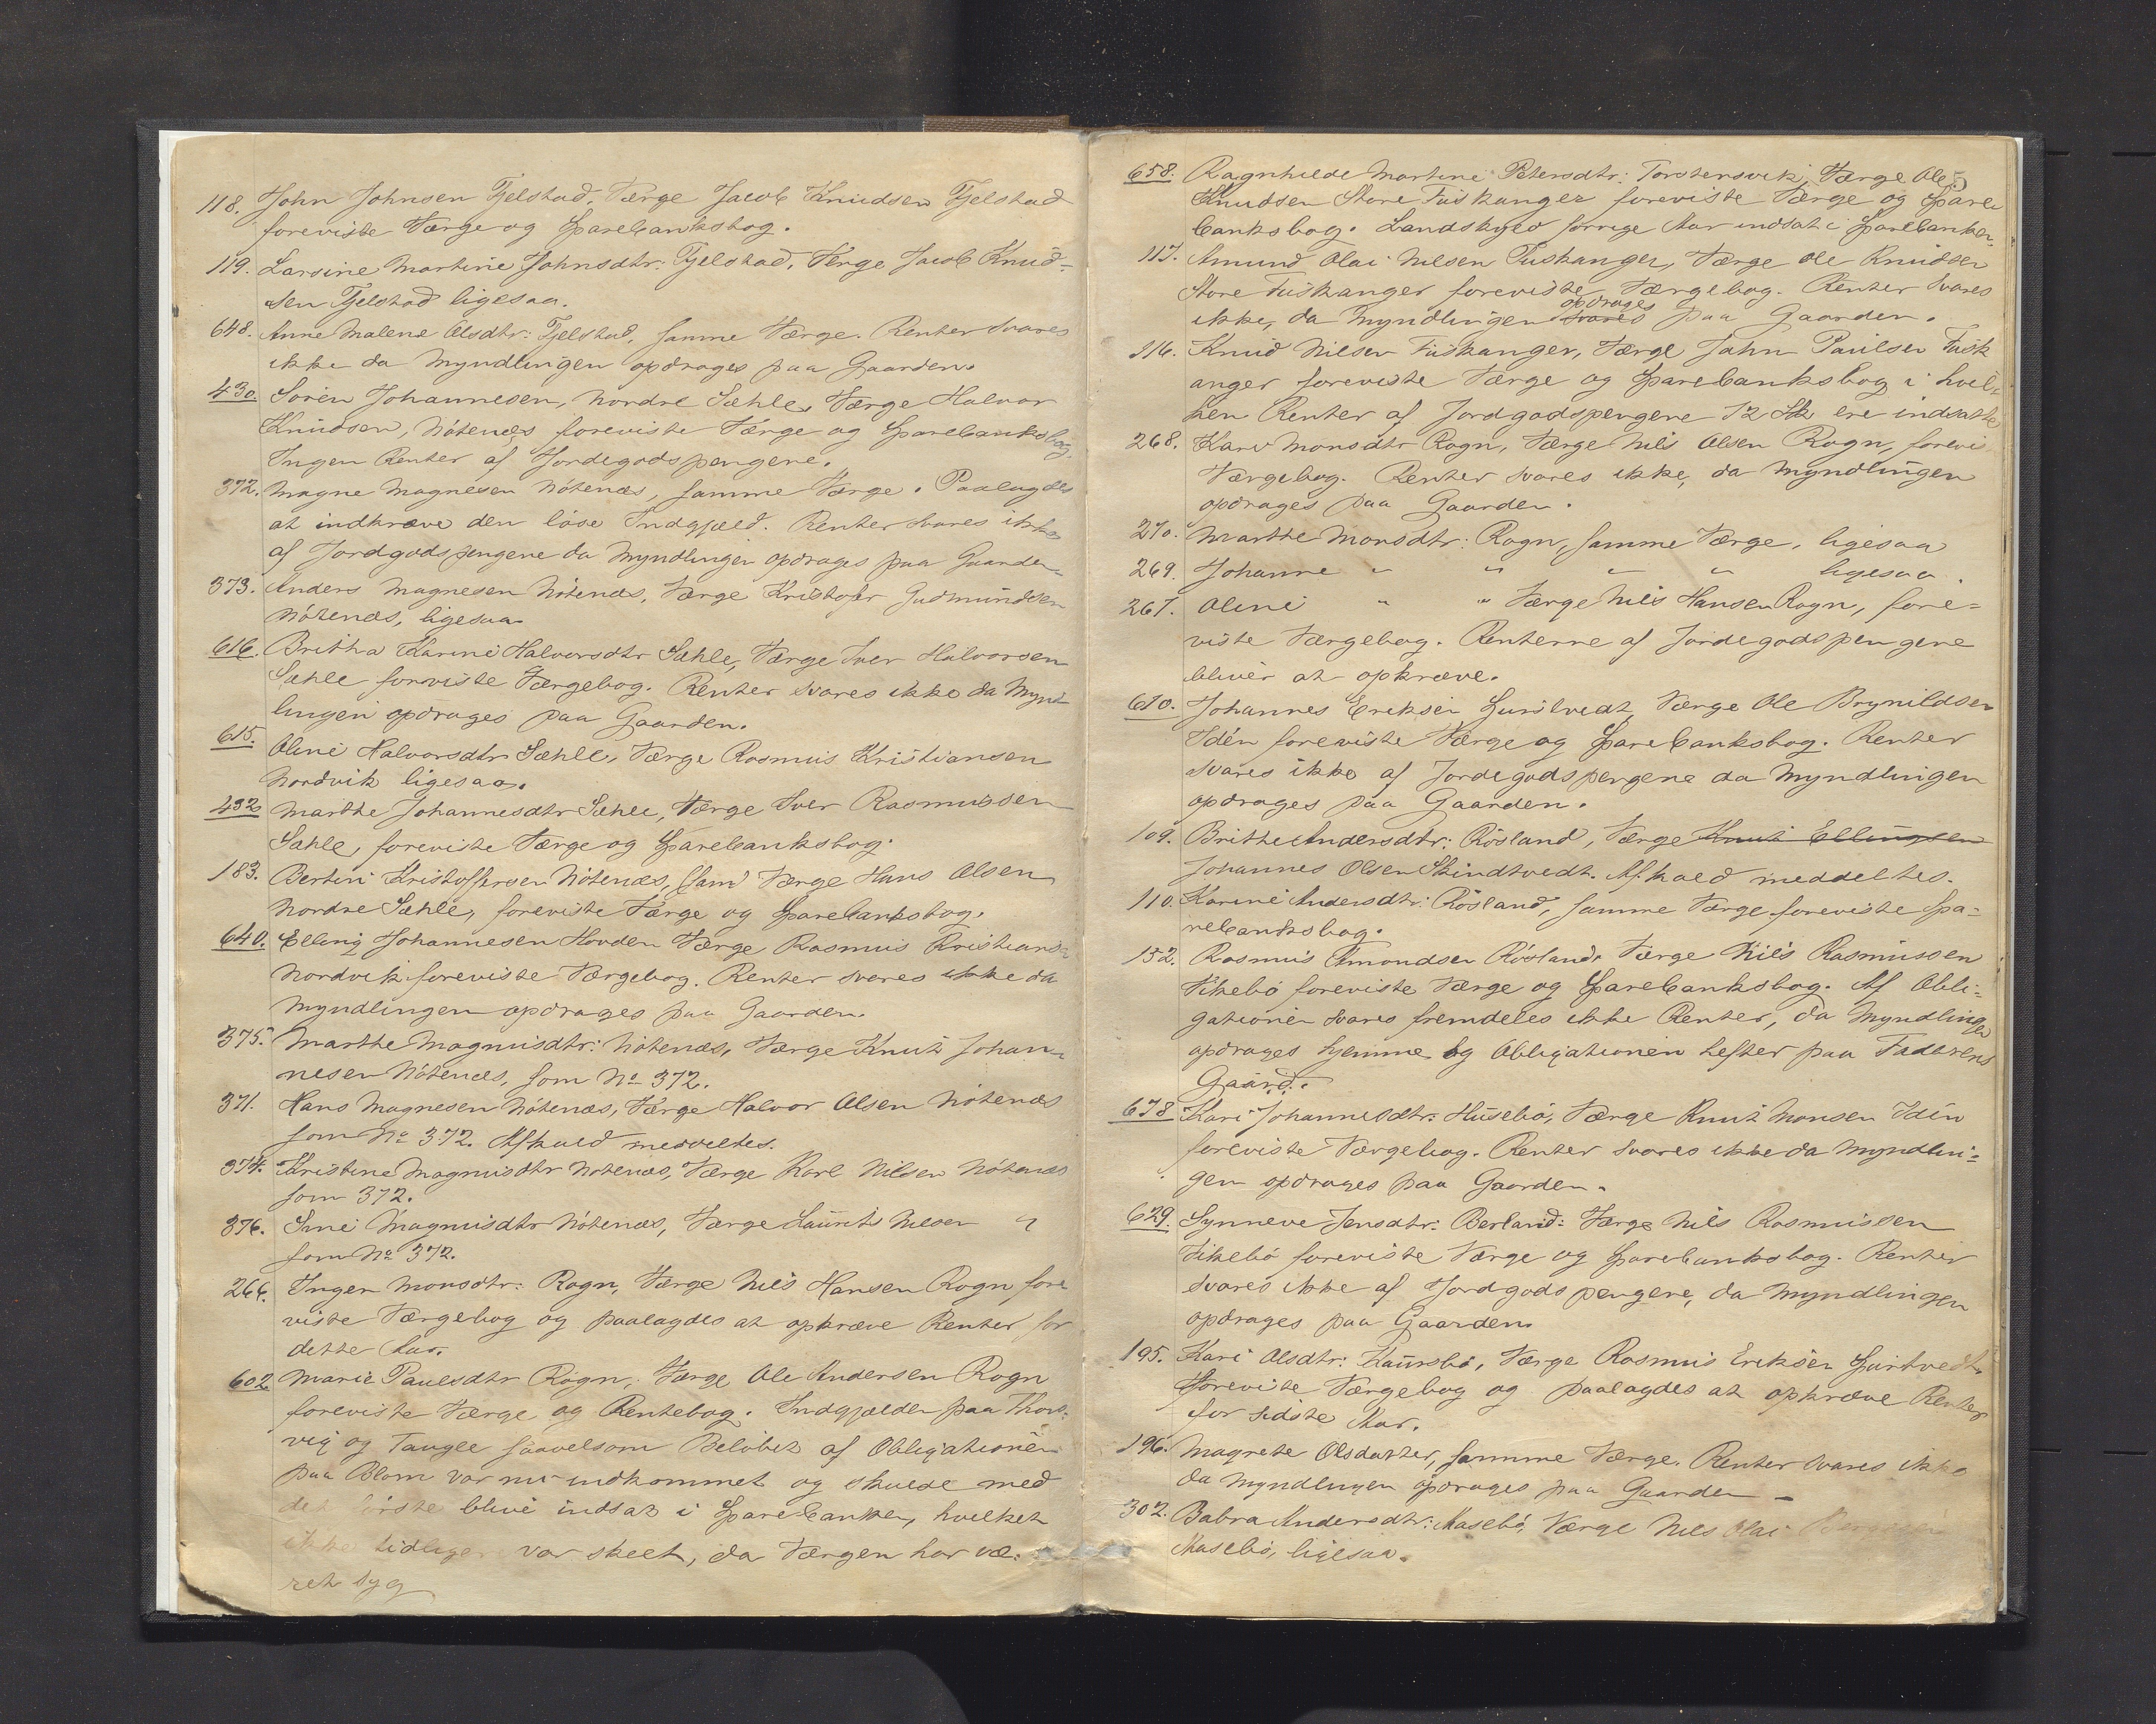 118. John Johnsen Fjelstad, Værge Jacob Knudsen Fjelstad
foreviste Værge og Sparebanksbog.
119. Larsine Martine Johnsdtr: Fjelstad, Værge Jacob Knud-
sen Fjelstad ligesaa.
648. Anne Malene Olsdtr: Fjelstad, samme Værge. Renter svares
ikke da Myndlingen opdrages paa Gaarden.
430. Sören Johannesen, Nordre Sæhle, Værge Halvor
Knudsen, Nötenæs foreviste Værge og Sparebanksbog.
Ingen Renter af Jordegodspengene.
372. Magne Magnesen Nötenæs, samme Værge. Paalagdes
at indkræve den löse Indgjæld. Renter svares ikke
af Jordgodspengene da Myndlingen opdrages paa Gaarden.
373. Anders Magnesen Nötenæs, Værge Kristofer Gudmundsen
Nötenæs, ligesaa.
616. Britha Karine Halvorsdtr Sæhle, Værge Iver Halvorsen
Sæhle foreviste Værgebog. Renter svares ikke da Mynd
lingen opdrages paa Gaarden.
615. Oline Halvorsdtr Sæhle, Værge Rasmus Kristiansen
Nordvik ligesaa.
432 Marthe Johannesdtr Sæhle, Værge Iver Rasmussen
Sæhle, foreviste Værge og Sparebanksbog.
183. Bertini Kristoffersen Nötenæs, Værge Hans Olsen
Nordre Sæhle, foreviste Værge og Sparebanksbog.
640. Elling Johannesen Hovden Værge Rasmus Kristians-
Nordvik foreviste Værgebog. Renter svares ikke da
Myndlingen opdrages paa Gaarden.
375. Marthe Magnusdtr: Nötenæs, Værge Knut Johan-
nesen Nötenæs, som No 372.
371. Hans Magnesen Nötenæs, Værge Halvor Olsen Nötenæs
som No 372. Afkald meddeltes.
374. Kristine Magnusdtr Nötenæs, Værge Karl Nilsen Nötenæs
som 372.
376. Sine Magnusdtr Nötenæs, Værge Laurits Nilsen "
som No 372.
266. Inger Monsdtr: Rogn, Værge Nils Hansen Rogn, fore
viste Værgebog og paalagdes at opkræve Renter for
dette Aar.
602 Marie Paulsdtr Rogn, Værge Ole Andersen Rogn
foreviste Værge og Rentebog. Indgjælden paa Thors-
vig og Taugle saavelsom Belöbet af Obligationen
paa Blom var nu indkommet og skulde med
det förste blive indsat i Sparebanken, hvilket
ikke tidliger var skeet, da Værgen har væ-
ret syg
5
658. Ragnhilde Martine Petersdtr: Torstensvik, Værge Ole
Knudsen Store Fuskanger foreviste Værge og Spare
banksbog. Landskyld forrige Aar indsat i Sparebanken.
117. Amund Olai Nilsen Fuskanger, Værge Ole Knudsen
Store Fuskanger foreviste Værgebog. Renter svares
ikke, da Myndlingen svares opdrages paa Gaarden.
116. Knud Nilsen Fuskanger, Værge John Paulsen Fusk
anger foreviste Værge og Sparebanksbog i hvil-
ken Renter af Jordgodspengene 72 Sk ere indsatte
268. Kari Monsdtr Rogn, Værge Nils Olsen Rogn, forevis.
Værgebog. Renter svares ikke, da Myndlingen
opdrages paa Gaarden.
270. Marthe Monsdtr: Rogn, samme Værge, ligesaa
269. Johanne " " " " ligesaa.
267. Oline " " Værge Nils Hansen Rogn, fore-
viste Værgebog. Renterne af Jordegodspengene
bliver at opkræve.
610. Johannes Eriksen Værge Ole Brynildsen
Idén foreviste Værge og Sparebanksbog. Renter
svares ikke af Jordegodspengene da Myndlingen
opdrages paa Gaarden.
109. Brithe Andersdtr: Rösland, Værge Knut Ellingsen
Johannes Olsen Skindtvedt. Afkald meddeltes.
110. Karine Andersdtr: Rösland, samme Værge foreviste Spa-
rebanksbog.
152. Rasmus Amondsen Rösland, Værge Nils Rasmussen
Vikebö foreviste Værge og Sparebanksbog. Af Obli-
gationen svares fremdeles ikke Renter, da Myndlingen
opdrages hjemme og Obligationen hefter paa Faderens
Gaard.
678 Kari Johannesdtr: Husebö, Værge Knut Monsen Idén
foreviste Værgebog. Renter svares ikke da Myndlin-
gen opdrages paa Gaarden.
629. Synneve Jensdtr: Berland: Værge Nils Rasmussen
Vikebö foreviste Værge og Sparebanksbog. Renter
svares ikke af Jordgodspengene, da Myndlingen
opdrages paa Gaarden.
195. Kari Olsdtr: Værge Rasmus Eriksen
foreviste Værgebog og paalagdes at opkræve Renter
for sidste Aar.
196. Magrete Olsdatter, samme Værge. Renter svares ikke
da Myndlingen opdrages paa Gaarden –
302. Babra Andersdtr: Aasebö, Værge Nils Olai
Aasebö, ligesaa.